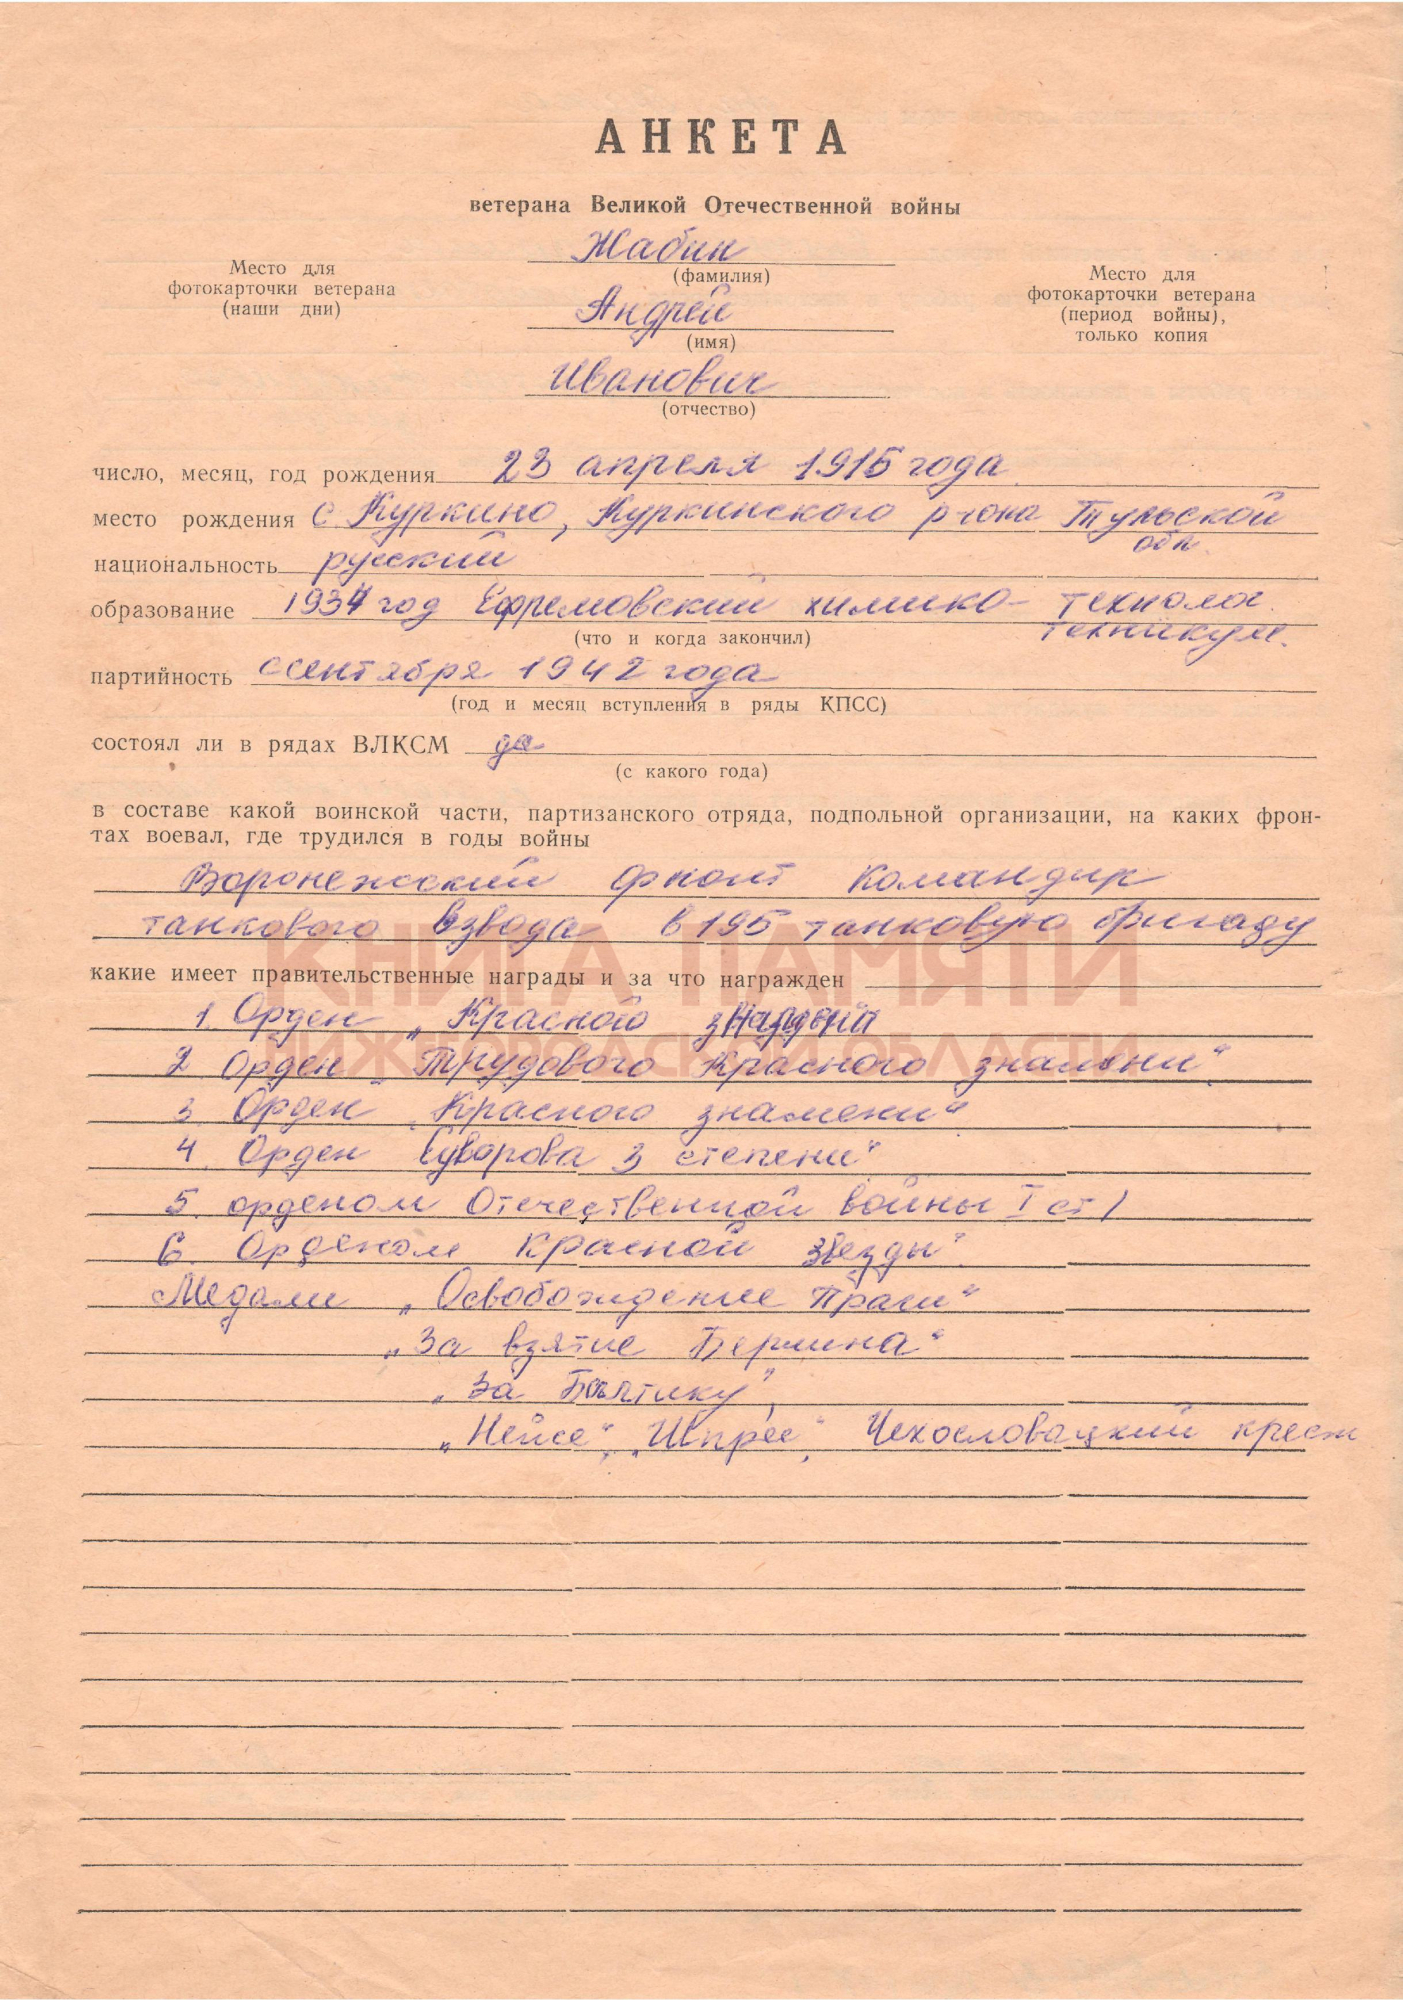 АНКЕТА
ветерана Великой Отечественной войны
Жабин
(фамилия)
Андрей
(имя)
Иванович
(отчество)
Место для
фотокарточки ветерана
(наши дни)
Место для
фотокарточки ветерана
(период войны),
только копия
число, месяц, год рождения 23 апреля 1915 года
место рождения с. Куркино, Куркинского р-она Тульской
обл.
национальность русский
образование 1934 год Ефремовский химико- технолог.
(что и когда закончил) техникум.
партийность с сентября 1942 года
(год и месяц вступления в ряды КПСС)
состоял ли в рядах ВЛКСМ да
(с какого года)
в составе какой воинской части, партизанского отряда, подпольной организации, на каких фрон-
тах воевал, где трудился в годы войны
Воронежский фронт Командир
танкового взвода в 195 танковую бригаду
КНИГА ПАМЯТИ
какие имеет правительственные награды и за что награжден
1. Орден „Красного
НИЖЕГОРОДСКОЙ ОБЛАСТИ
2 Орден „Трудового Красного знамени“
3. Орден „Красного знамени“
4. Орден Суворова 3 степени“
5. орденом Отечественной войны I ст
6. Орденом Красной звезды“
Медали „Освобождение Праги“
„За взятие Берлина“
„За Балтику“,
„Нейсе“, „Шпрее“, Чехословацкий крест